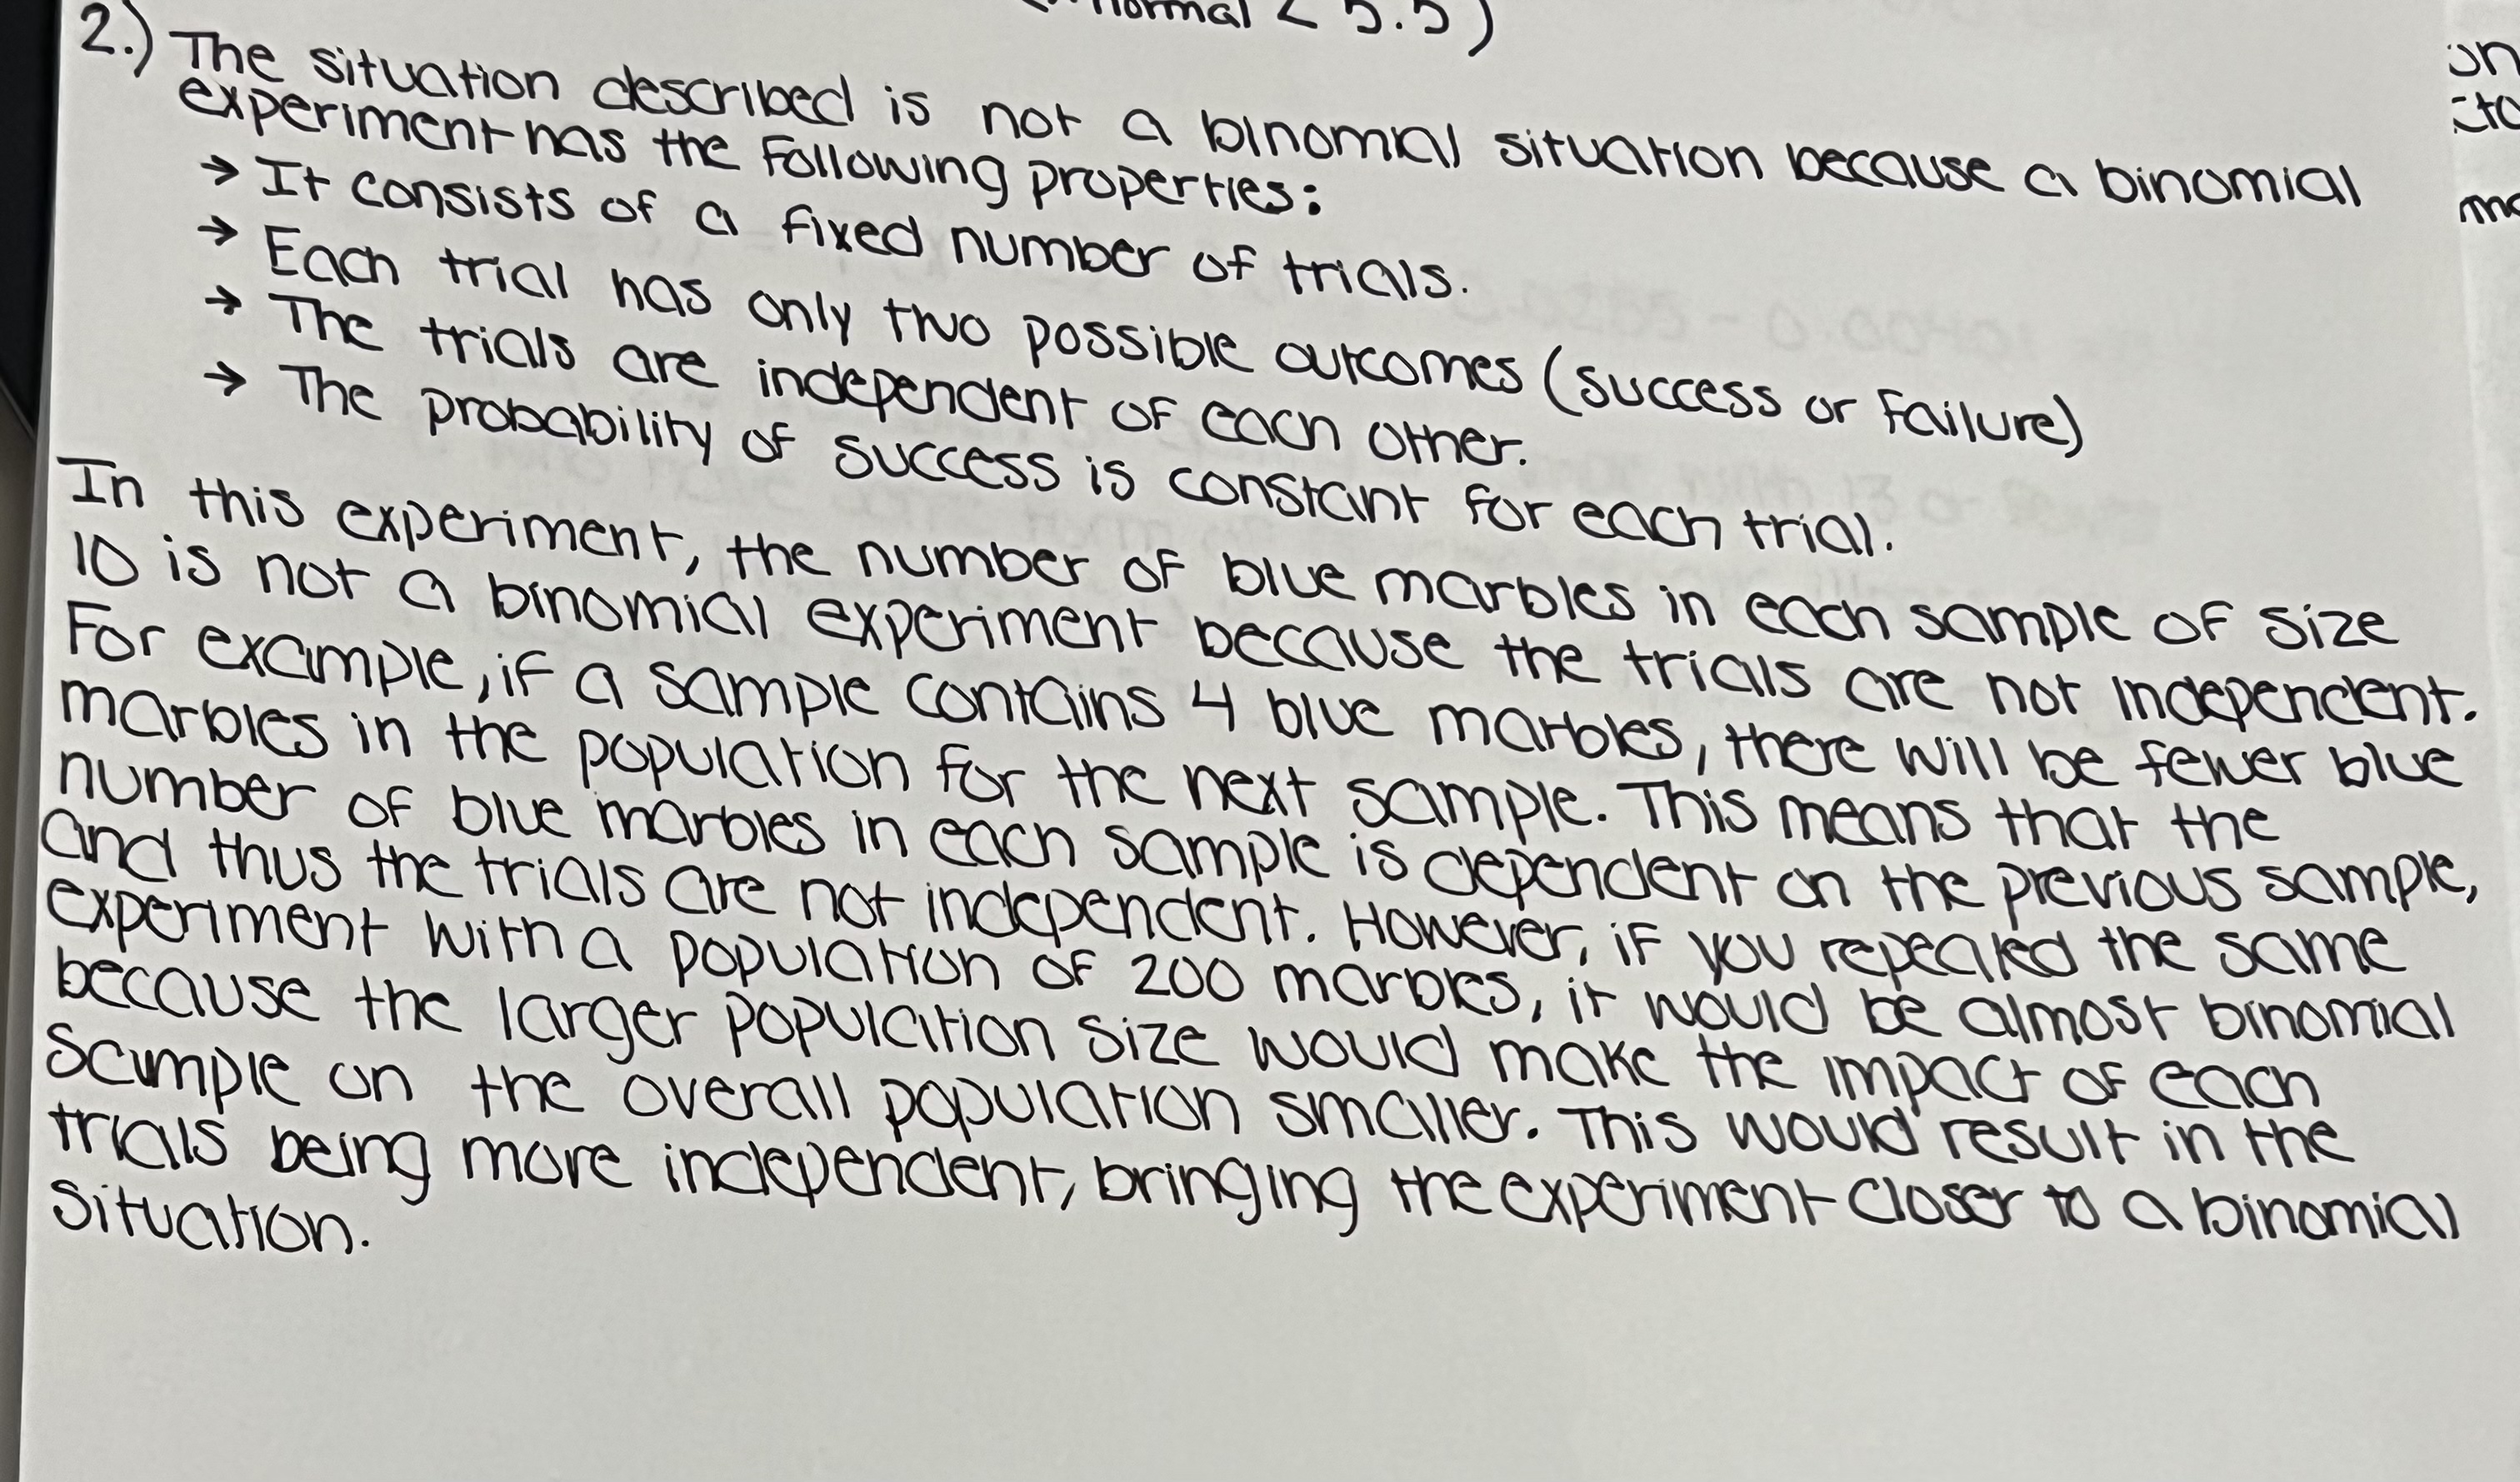 normal < 5.5)
2.) The situation described is not a binomial situation because a binomial
experiment has the following properties:
→ It consists of a fixed number of trials.
→ Each trial has only two possible outcomes (success or failure)
→ The trials are independent of each other.
→ The probability of success is constant for each trial.
In this experiment, the number of blue marbles in each sample of size
10 is not a binomial experiment because the trials are not independent.
For example, if a sample contains 4 blue marbles, there will be fewer blue
marbles in the population for the next sample. This means that the
number of blue marbles in each sample is dependent on the previous sample,
and thus the trials are not independent. However, if you repeated the same
experiment with a population of 200 marbles, it would be almost binomial
because the larger population size would make the impact of each
sample on the overall population smaller. This would result in the
trials being more independent, bringing the experiment closer to a binomial
situation.